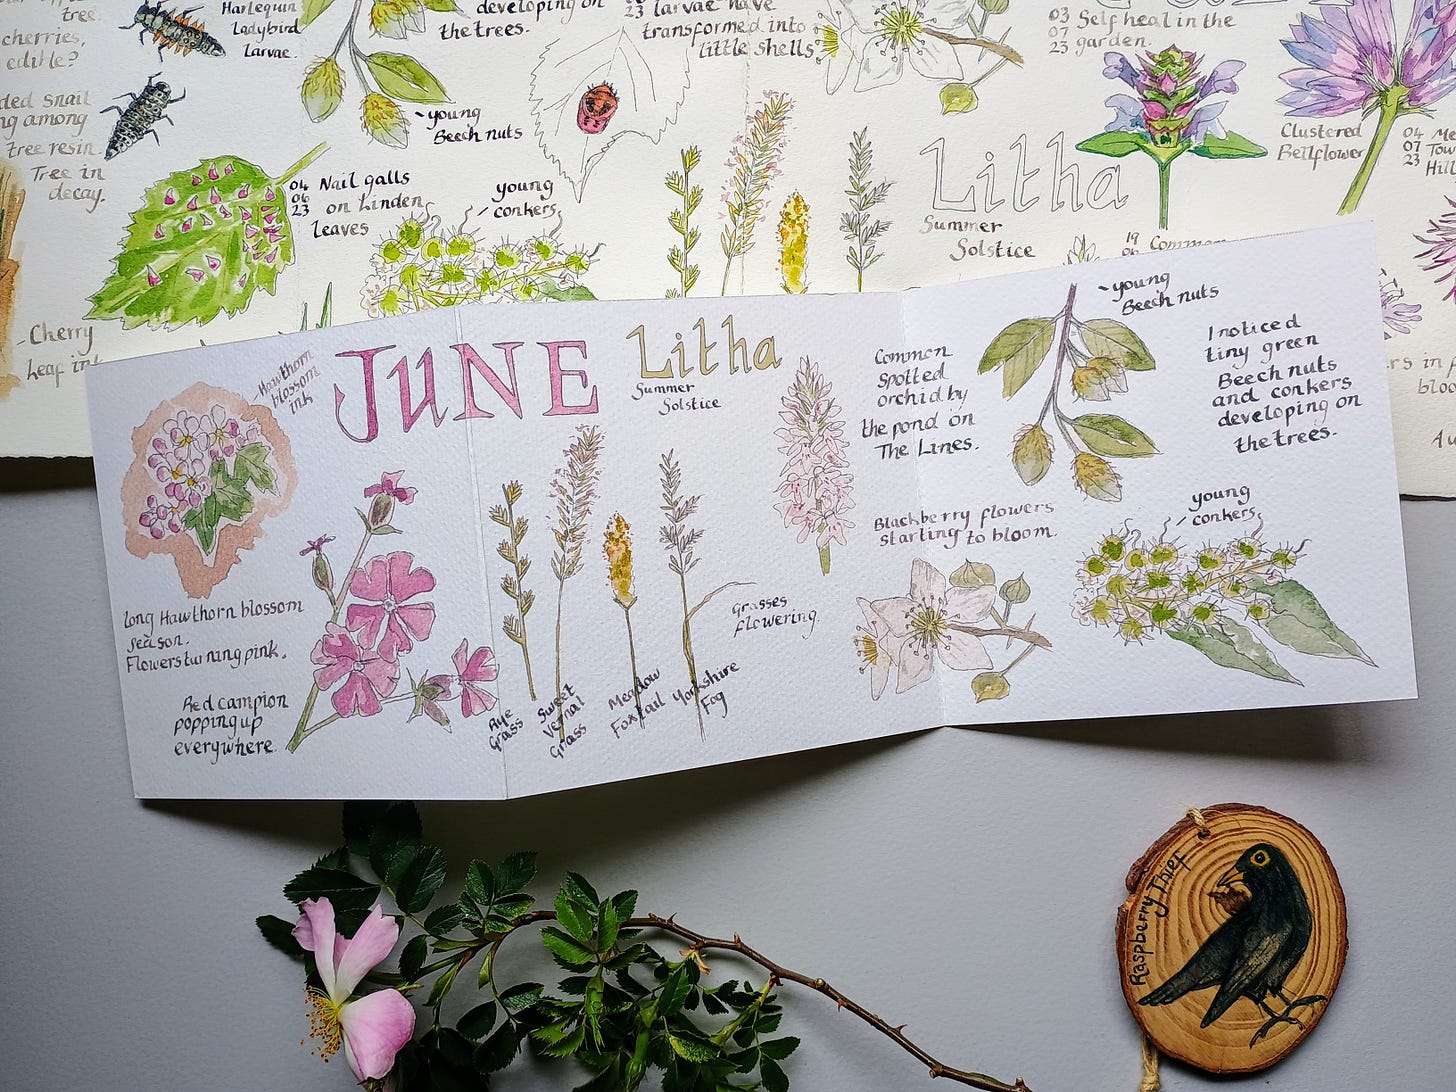 tree.
cherries,
edible?
Harlequin
Ladybird
Larvae.
developing on
the trees.
23 larvae have
transformed into
little shells
03
07
23
Self heal in the
garden.
ded snail
ng among
tree resin.
Tree in
decay.
~young
Beech nuts
04
06
23
Nail galls
on Linden
leaves
young
conkers
Litha
Summer
Solstice
Clustered
Bellflower
04
07
23
19
Common
Cherry
leaf ink
Hawthorn
blossom
ink
JUNE
Litha
Summer
Solstice
Common
Spotted
orchid by
the pond on
The Lines.
~young
Beech nuts
I noticed
tiny green
Beech nuts
and conkers
developing on
the trees.
Blackberry flowers
starting to bloom.
young
conkers
long Hawthorn blossom
season.
Flowers turning pink.
Red campion
popping up
everywhere.
Rye
Grass
Sweet
Vernal
Grass
Meadow
Foxtail
Yorkshire
Fog
Grasses
flowering.
Raspberry Thief